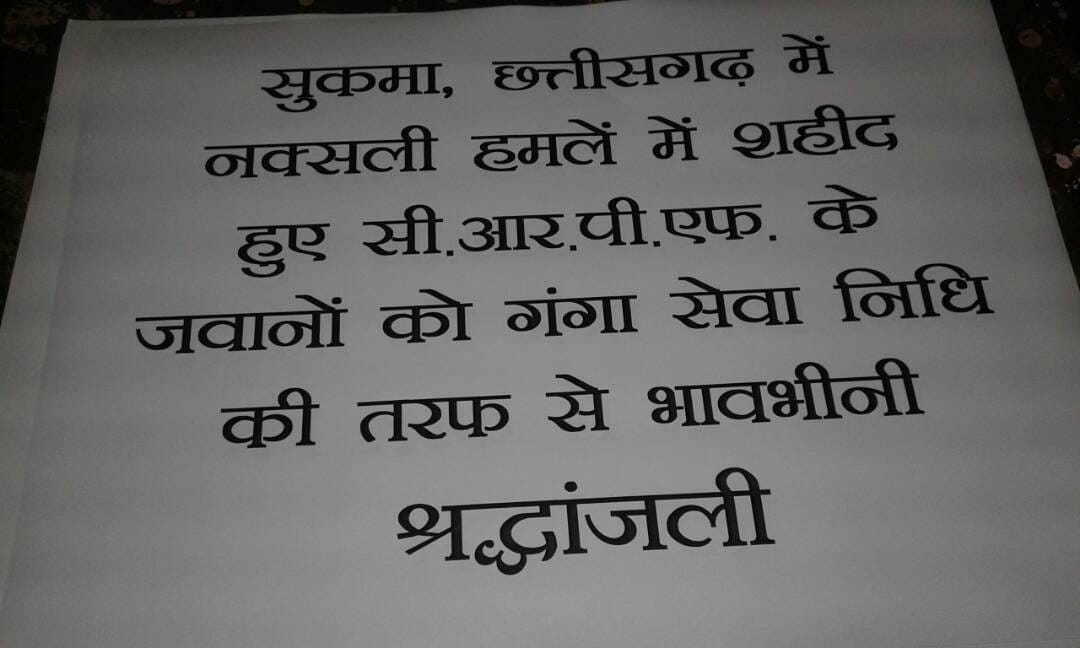 सुकमा, छत्तीसगढ़ में
नक्सली हमलें में शहीद
हुए सी.आर.पी.एफ. के
जवानों को गंगा सेवा निधि
की तरफ से भावभीनी
श्रद्धांजली